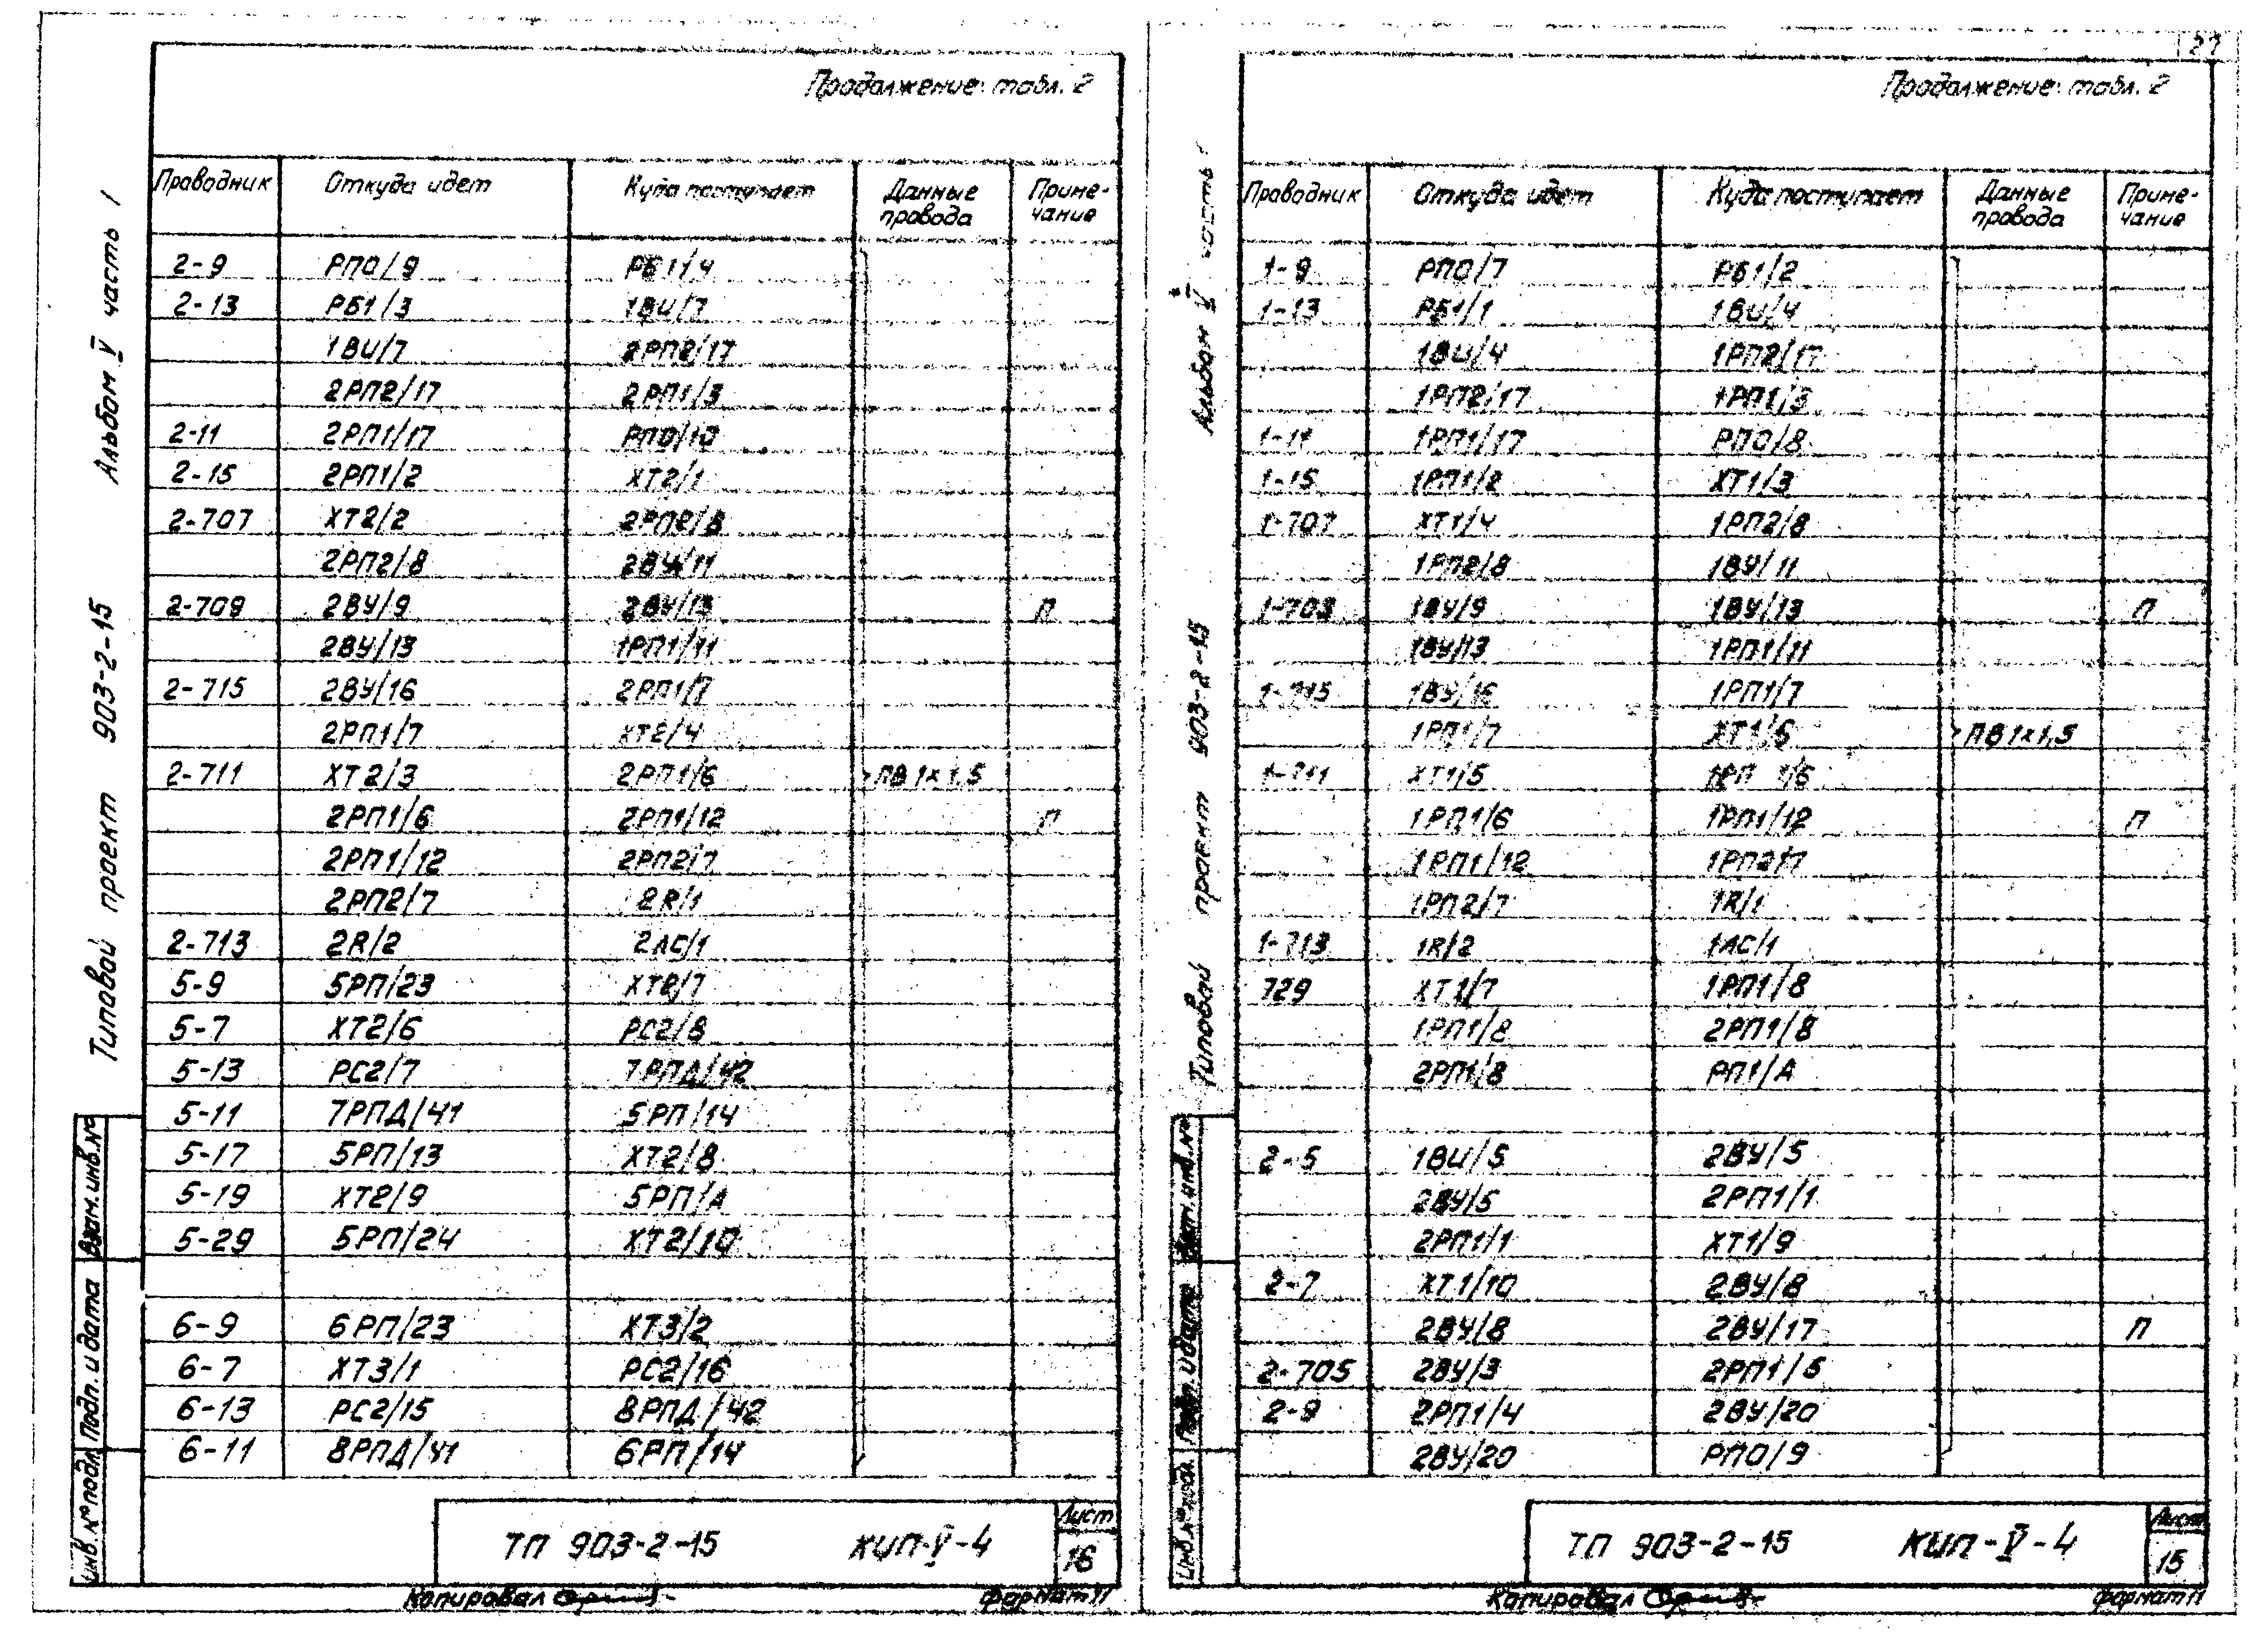 Продолжение табл. 2
Проводник Откуда идет Куда поступает Данные провода Приме-чание
2-9 РП0/9 РБ1/4
2-13 РБ1/3 1ВИ/7
1ВИ/7 2РП2/17
2РП2/17 2РП1/3
2-11 2РП1/17 РП0/10
2-15 2РП1/2 ХТ2/1
2-707 ХТ2/2 2РП2/8
2РП2/8 2ВУ/11
2-709 2ВУ/9 2ВУ/13 П
2ВУ/13 1РП1/11
2-715 2ВУ/16 2РП1/7
2РП1/7 ХТ2/4
2-711 ХТ2/3 2РП1/6 ПВ 1×1,5
2РП1/6 2РП1/12 П
2РП1/12 2РП2/7
2РП2/7 2R/1
2-713 2R/2 2ЛС/1
5-9 5РП/23 ХТ2/7
5-7 ХТ2/6 РС2/8
5-13 РС2/7 7РПД/42
5-11 7РПД/41 5РП/14
5-17 5РП/13 ХТ2/8
5-19 ХТ2/9 5РП/А
5-29 5РП/24 ХТ2/10
6-9 6РП/23 ХТ3/2
6-7 ХТ3/1 РС2/16
6-13 РС2/15 8РПД/42
6-11 8РПД/41 6РП/14
Типовой проект 903-2-15 Альбом V часть 1
Взам. инв. №
Подп. и дата
Инв. № подл.
ТП 903-2-15 КИП-V-4
Лист
16
Копировал
Формат 11
27
Продолжение табл. 2
Проводник Откуда идет Куда поступает Данные провода Приме-чание
1-9 РП0/7 РБ1/2
1-13 РБ1/1 1ВИ/4
1ВИ/4 1РП2/17
1РП2/17 1РП1/3
1-11 1РП1/17 РП0/8
1-15 1РП1/2 ХТ1/3
1-707 ХТ1/4 1РП2/8
1РП2/8 1ВУ/11
1-709 1ВУ/9 1ВУ/13 П
1ВУ/13 1РП1/11
1-715 1ВУ/16 1РП1/7
1РП1/7 ХТ1/6 ПВ 1×1,5
1-711 ХТ1/5 1РП 1/6
1РП1/6 1РП1/12 П
1РП1/12 1РП2/7
1РП2/7 1R/1
1-713 1R/2 1ЛС/1
729 ХТ1/7 1РП1/8
1РП1/8 2РП1/8
2РП1/8 РП1/А
2-5 1ВИ/5 2ВУ/5
2ВУ/5 2РП1/1
2РП1/1 ХТ1/9
2-7 ХТ1/10 2ВУ/8
2ВУ/8 2ВУ/17 П
2-705 2ВУ/3 2РП1/5
2-9 2РП1/4 2ВУ/20
2ВУ/20 РП0/9
Типовой проект 903-2-15 Альбом V часть 1
Взам. инв. №
Подп. и дата
Инв. № подл.
ТП 903-2-15 КИП-V-4
Лист
15
Копировал
Формат 11